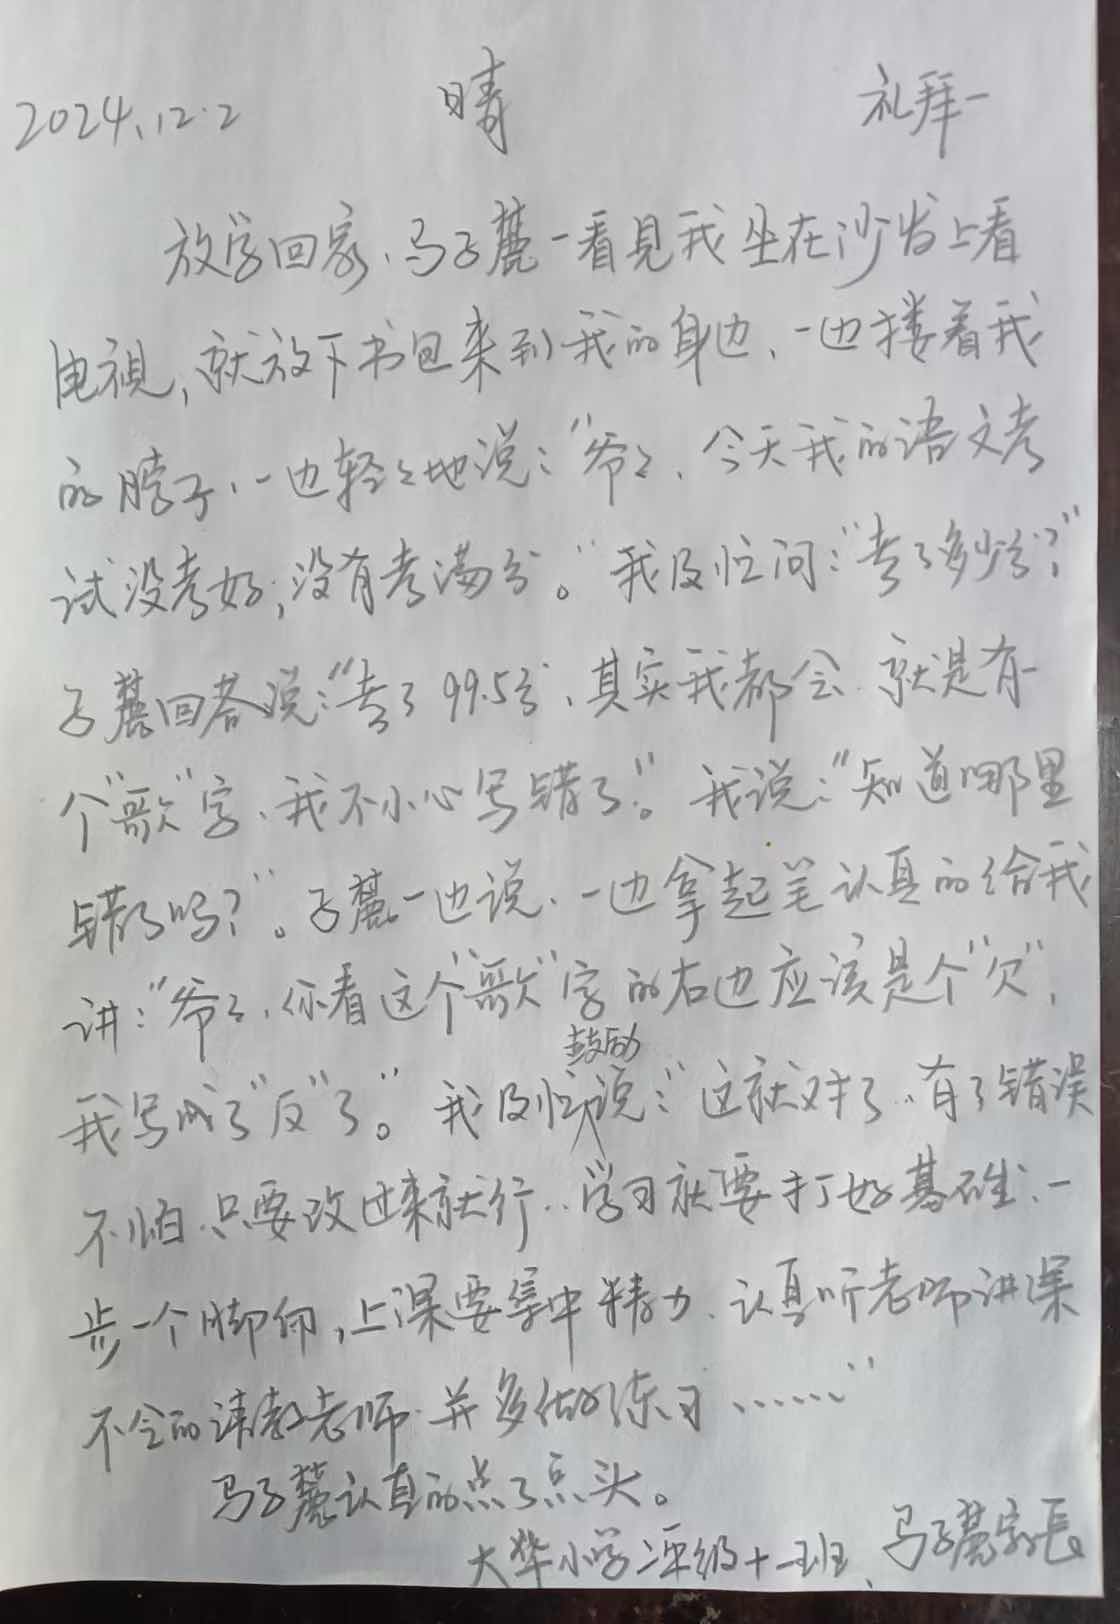 2024.12.2 晴 礼拜一
放学回家、马子麓一看見我坐在沙发上看
电视，就放下书包来到我的身边、一边搂着我
的脖子、一边轻々地说：“爷々、今天我的语文考
试没考好；没有考满分。”我及忙问：“考了多少分？”
子麓回答说：“考了99.5分、其实我都会、就是有一
个“歌”字、我不小心写错了。”我说：“知道哪里
错了吗？”。子麓一边说、一边拿起笔认真的给我
讲：“爷々、你看这个“歌”字的右边应该是个“欠”，
我写成了“反”了。”我及忙鼓励说：“这就对了、有了错误
不怕、只要改过来就行、学习就要打好基础、一
步一个脚印，上课要集中精力、认真听老师讲课
不会的请教老师、并多做练习……”
马子麓认真的点了点头。
大华小学二年级十一班、马子麓家長